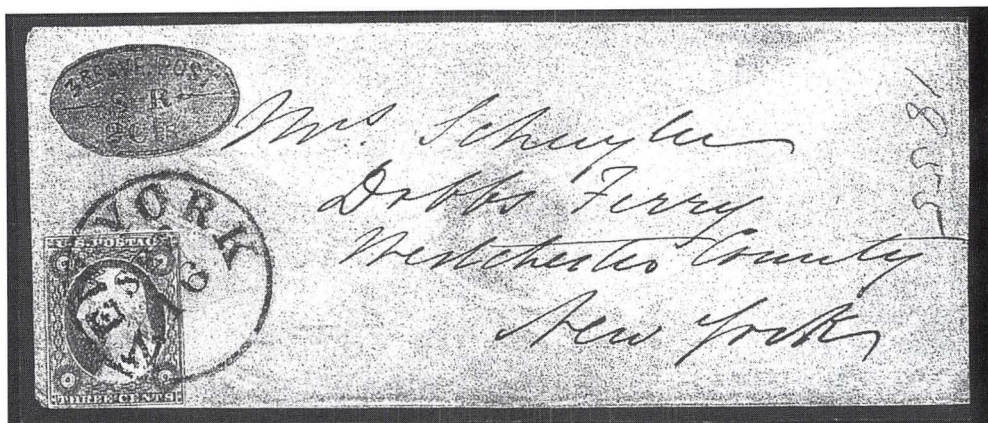 3RD AVE. POST
S&R
2 CTS
YORK
6
U.S. POSTAGE
THREE CENTS
Mrs. Schuyler
Dobbs Ferry
Westchester County
New York
1855